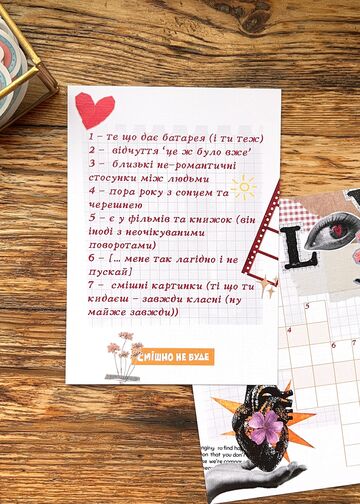 1 – те що дає батарея (і ти теж)
2 – відчуття ‘це ж було вже’
3 – близькі не-романтичні
стосунки між людьми
4 – пора року з сонцем та
черешнею
5 – є у фільмів та книжок (він
іноді з неочікуваними
поворотами)
6 – [… мене так лагідно і не
пускай]
7 – смішні картинки (ті що ти
кидаєш – завжди класні (ну
майже завжди))
СМІШНО НЕ БУДЕ
L V
1
4
5
6